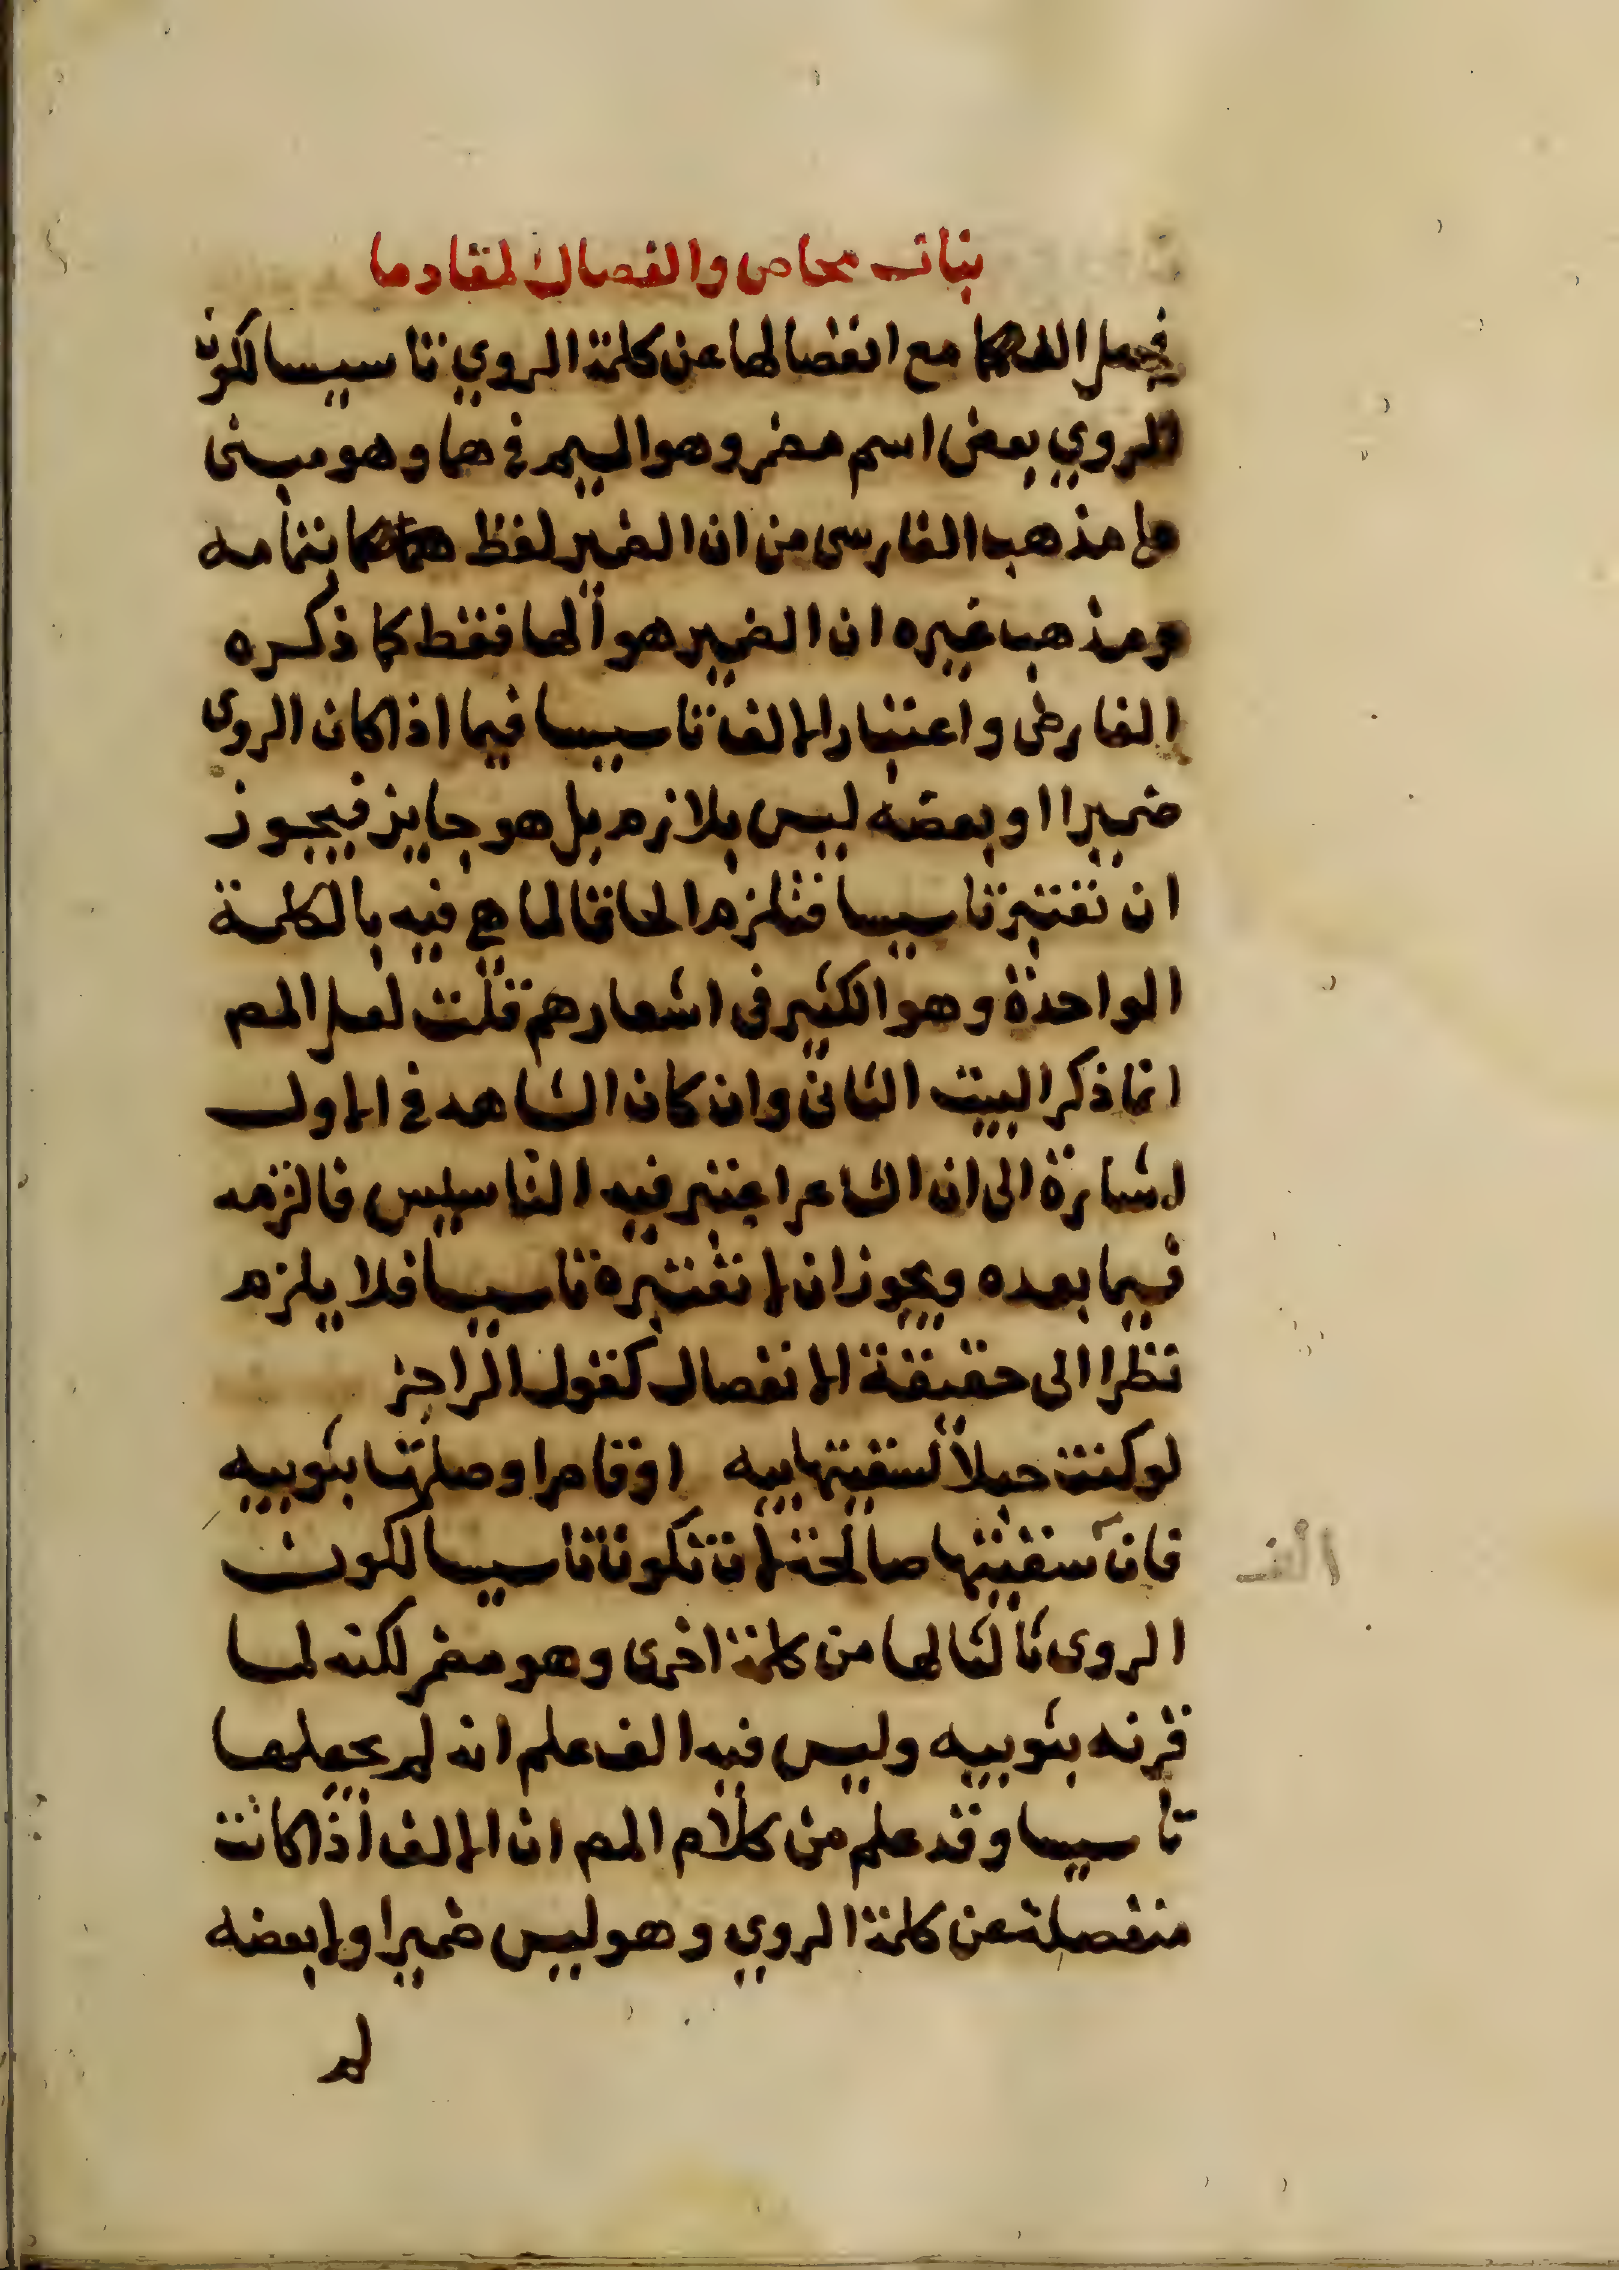 بنات مخاض والفصال المقادما
فجعل الف هما مع انفصالها عن كلمة الروي تاسيسا لكون
الروي بعض اسم مضمر وهو الميم في هما وهو مبنى
على مذهب الفارسى من ان الضمير لفظ هما بتمامه
ومذهب غيره ان الضمير هو الها فقط كما ذكره
الفارضى واعتبار الالف تاسيسا فيما اذا كان الروى
ضميرا او بعضه ليس بلازم بل هو جايز فيجوز
ان تعتبر تاسيسا فتلزم الحاقا لما هي فيه بالكلمة
الواحدة وهو الكثير فى اشعارهم قلت لعل المص
انما ذكر البيت الثانى وان كان الشاهد في الاول
اشارة الى ان الشاعر اعتبر فيه التاسيس فالتزمه
فيما بعده ويجوز ان لا تعتبره تاسيسا فلا يلزم
نظرا الى حقيقة الانفصال كقول الراجز
لو كنت حبلا لسقيتها بيه او قاصرا وصلتها بثوبيه
فان سقيتها صالحة لان تكون تاسيسا لكون
الف
الروى ثالثا لها من كلمة اخرى وهو مضمر لكنه لما
قرنه بثوبيه وليس فيه الف علم انه لم يجعلها
تاسيسا وقد علم من كلام المص ان الالف اذا كانت
منفصلة عن كلمة الروي وهو ليس ضميرا ولا بعضه
لم